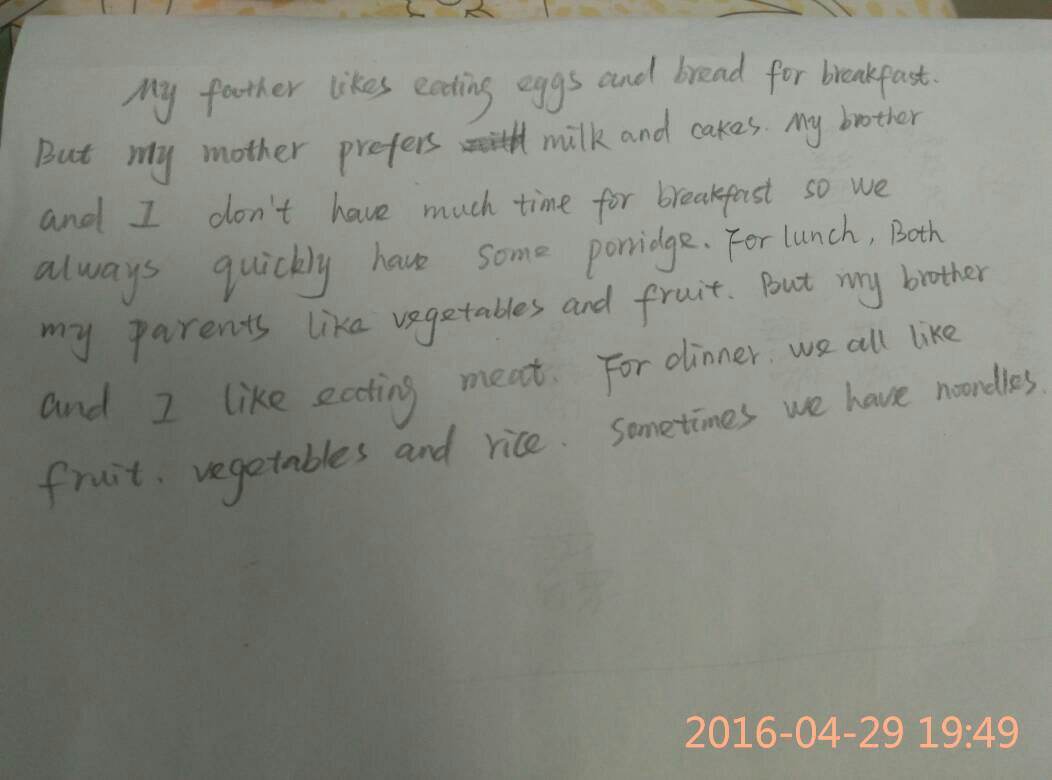 My father likes eating eggs and bread for breakfast.
But my mother prefers milk and cakes. My brother
and I don't have much time for breakfast so we
always quickly have some porridge. For lunch, Both
my parents like vegetables and fruit. But my brother
and I like eating meat. For dinner. we all like
fruit. vegetables and rice. Sometimes we have noondles.
2016-04-29 19:49